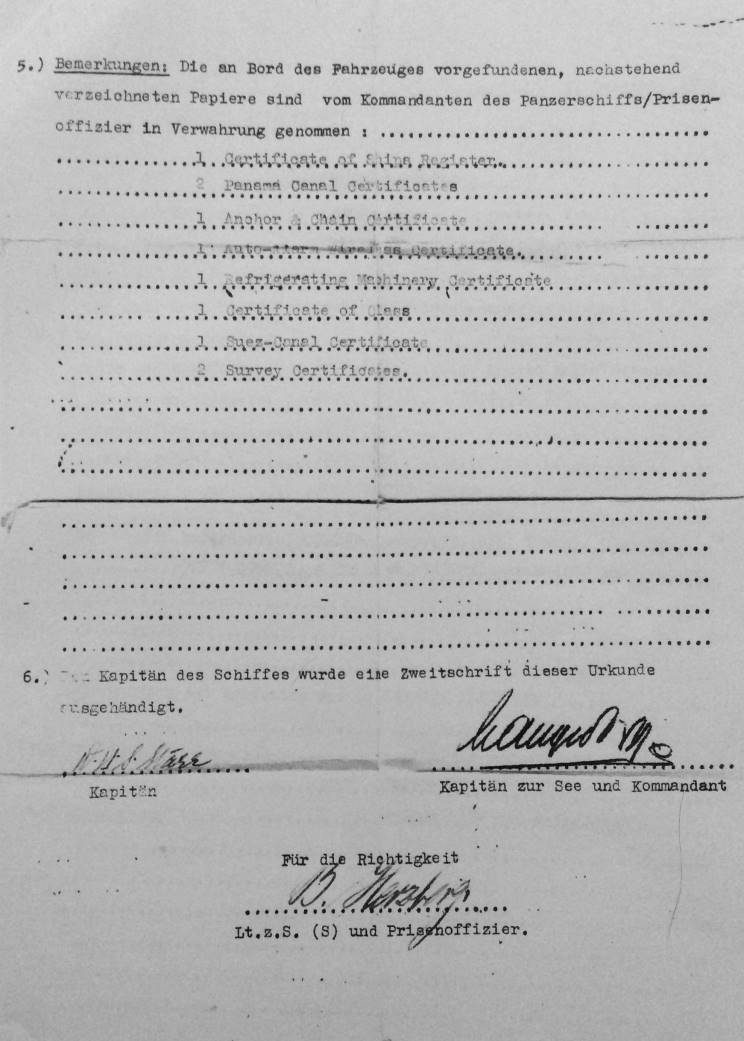 5.) Bemerkungen: Die an Bord des Fahrzeuges vorgefundenen, nachstehend
verzeichneten Papiere sind vom Kommandanten des Panzerschiffs/Prisen-
offizier in Verwahrung genommen :
1 Certificate of Ships Register.
2 Panama Canal Certificates
1 Anchor & Chain Certificate
1 Auto-alarm Wireless Certificate.
1 Refrigerating Machinery Certificate
1 Certificate of Class
1 Suez-Canal Certificate
2 Survey Certificates.
6.) Dem Kapitän des Schiffes wurde eine Zweitschrift dieser Urkunde
ausgehändigt.
Kapitän
Kapitän zur See und Kommandant
Für die Richtigkeit
B. Herzberg
Lt.z.S. (S) und Prisenoffizier.